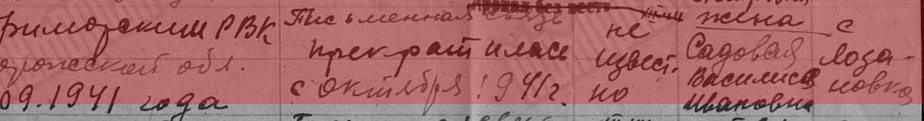 Приморским РВК
обл.
09.1941 года
Письменная связь
прекратилась
с октября 1941г.
не
извест-
но
жена
Садовая
Василиса
Ивановна
с
Лоза-
новка